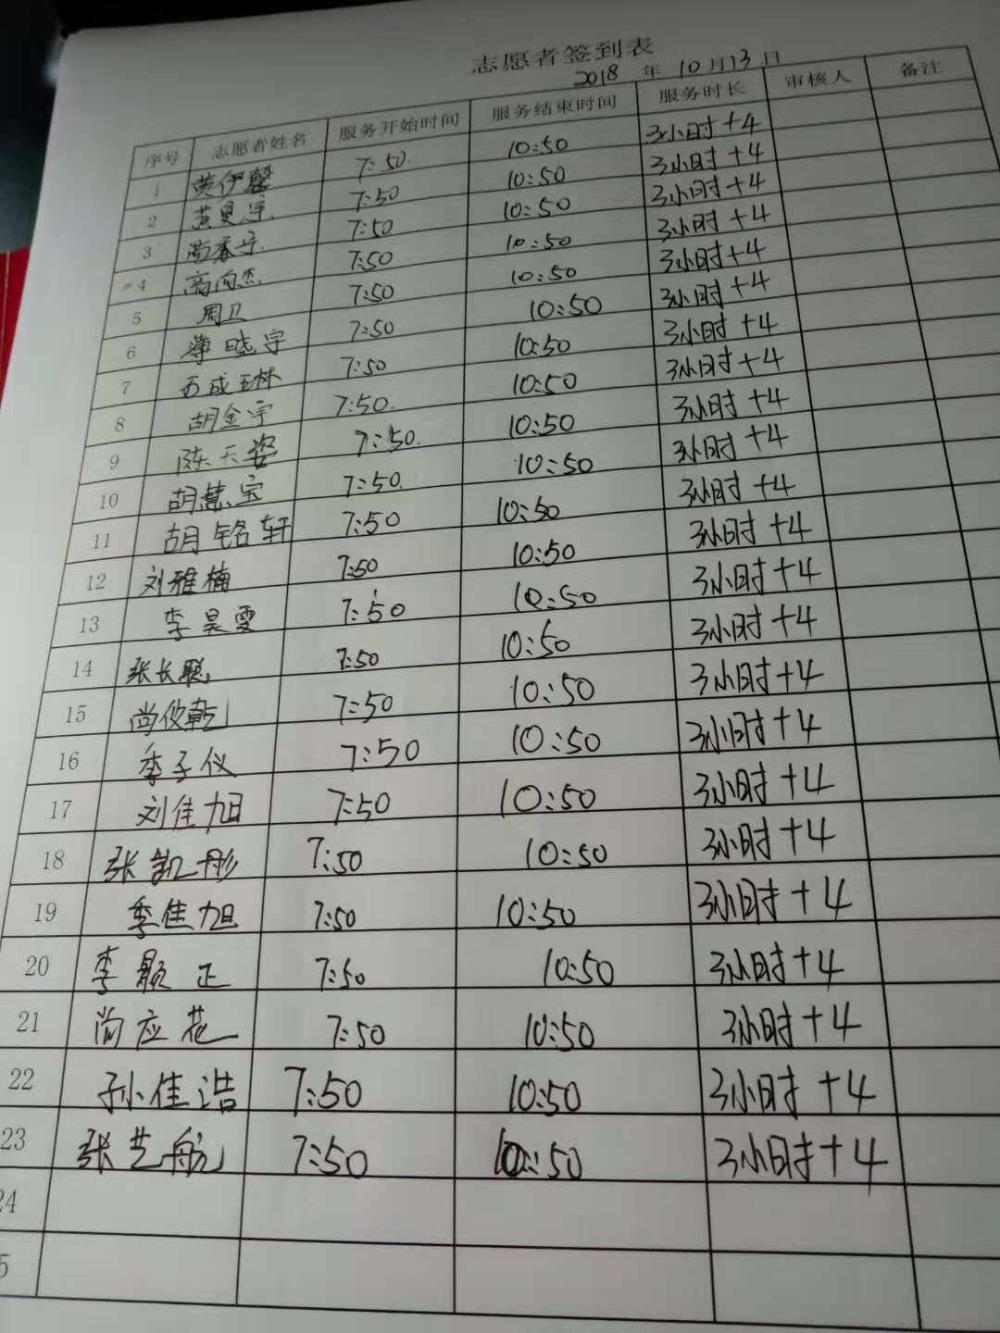 志愿者签到表
2018 年 10 月 13 日
序号 志愿者姓名 服务开始时间 服务结束时间 服务时长 审核人 备注
1 黄伊馨 7:50 10:50 3小时+4
2 黄夏宇 7:50 10:50 3小时+4
3 尚春宇 7:50 10:50 3小时+4
4 高向杰 7:50 10:50 3小时+4
5 周卫 7:50 10:50 3小时+4
6 薄晓宇 7:50 10:50 3小时+4
7 7:50 10:50 3小时+4
8 胡金宇 7:50 10:50 3小时+4
9 陈天姿 7:50 10:50 3小时+4
10 胡慧宝 7:50 10:50 3小时+4
11 胡铭轩 7:50 10:50 3小时+4
12 刘雅楠 7:50 10:50 3小时+4
13 李昊雯 7:50 10:50 3小时+4
14 张长聪 7:50 10:50 3小时+4
15 尚俊乾 7:50 10:50 3小时+4
16 季子仪 7:50 10:50 3小时+4
17 刘佳旭 7:50 10:50 3小时+4
18 张凯彤 7:50 10:50 3小时+4
19 季佳旭 7:50 10:50 3小时+4
20 李颢正 7:50 10:50 3小时+4
21 尚应花 7:50 10:50 3小时+4
22 孙佳浩 7:50 10:50 3小时+4
23 张艺航 7:50 10:50 3小时+4
24
5